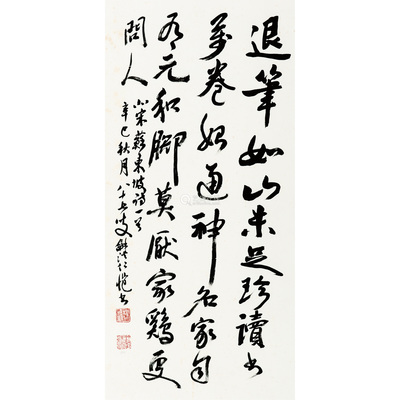 退筆如山未足珍讀書
萬卷始通神君家自
有元和腳莫厭家鷄更
問人
宋蘇東坡詩一首
辛巳秋月八十叟仁愷書